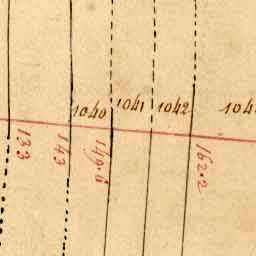 1040 1041 1042
133
143
149.
162.2